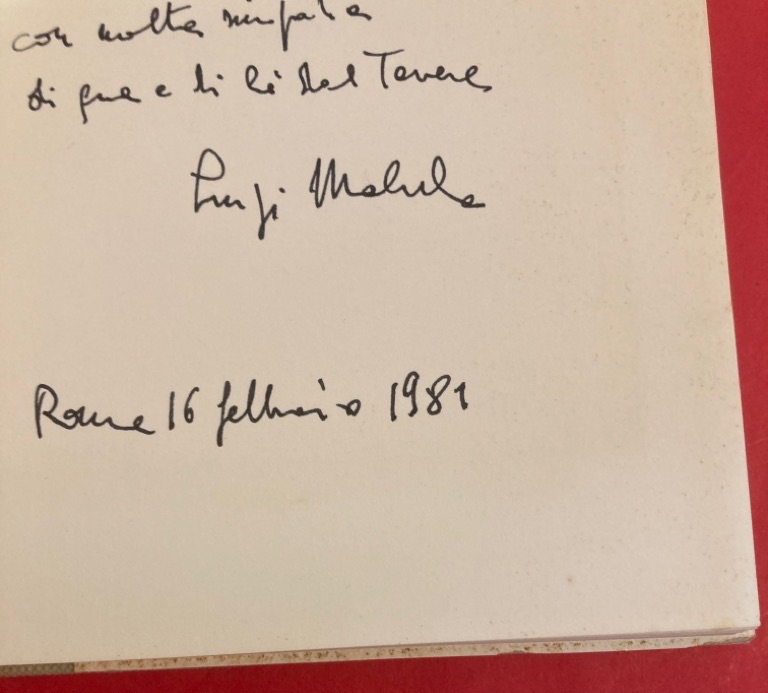 con molta simpatia
di qua e di là del Tevere
Luigi
Roma 16 febbraio 1981